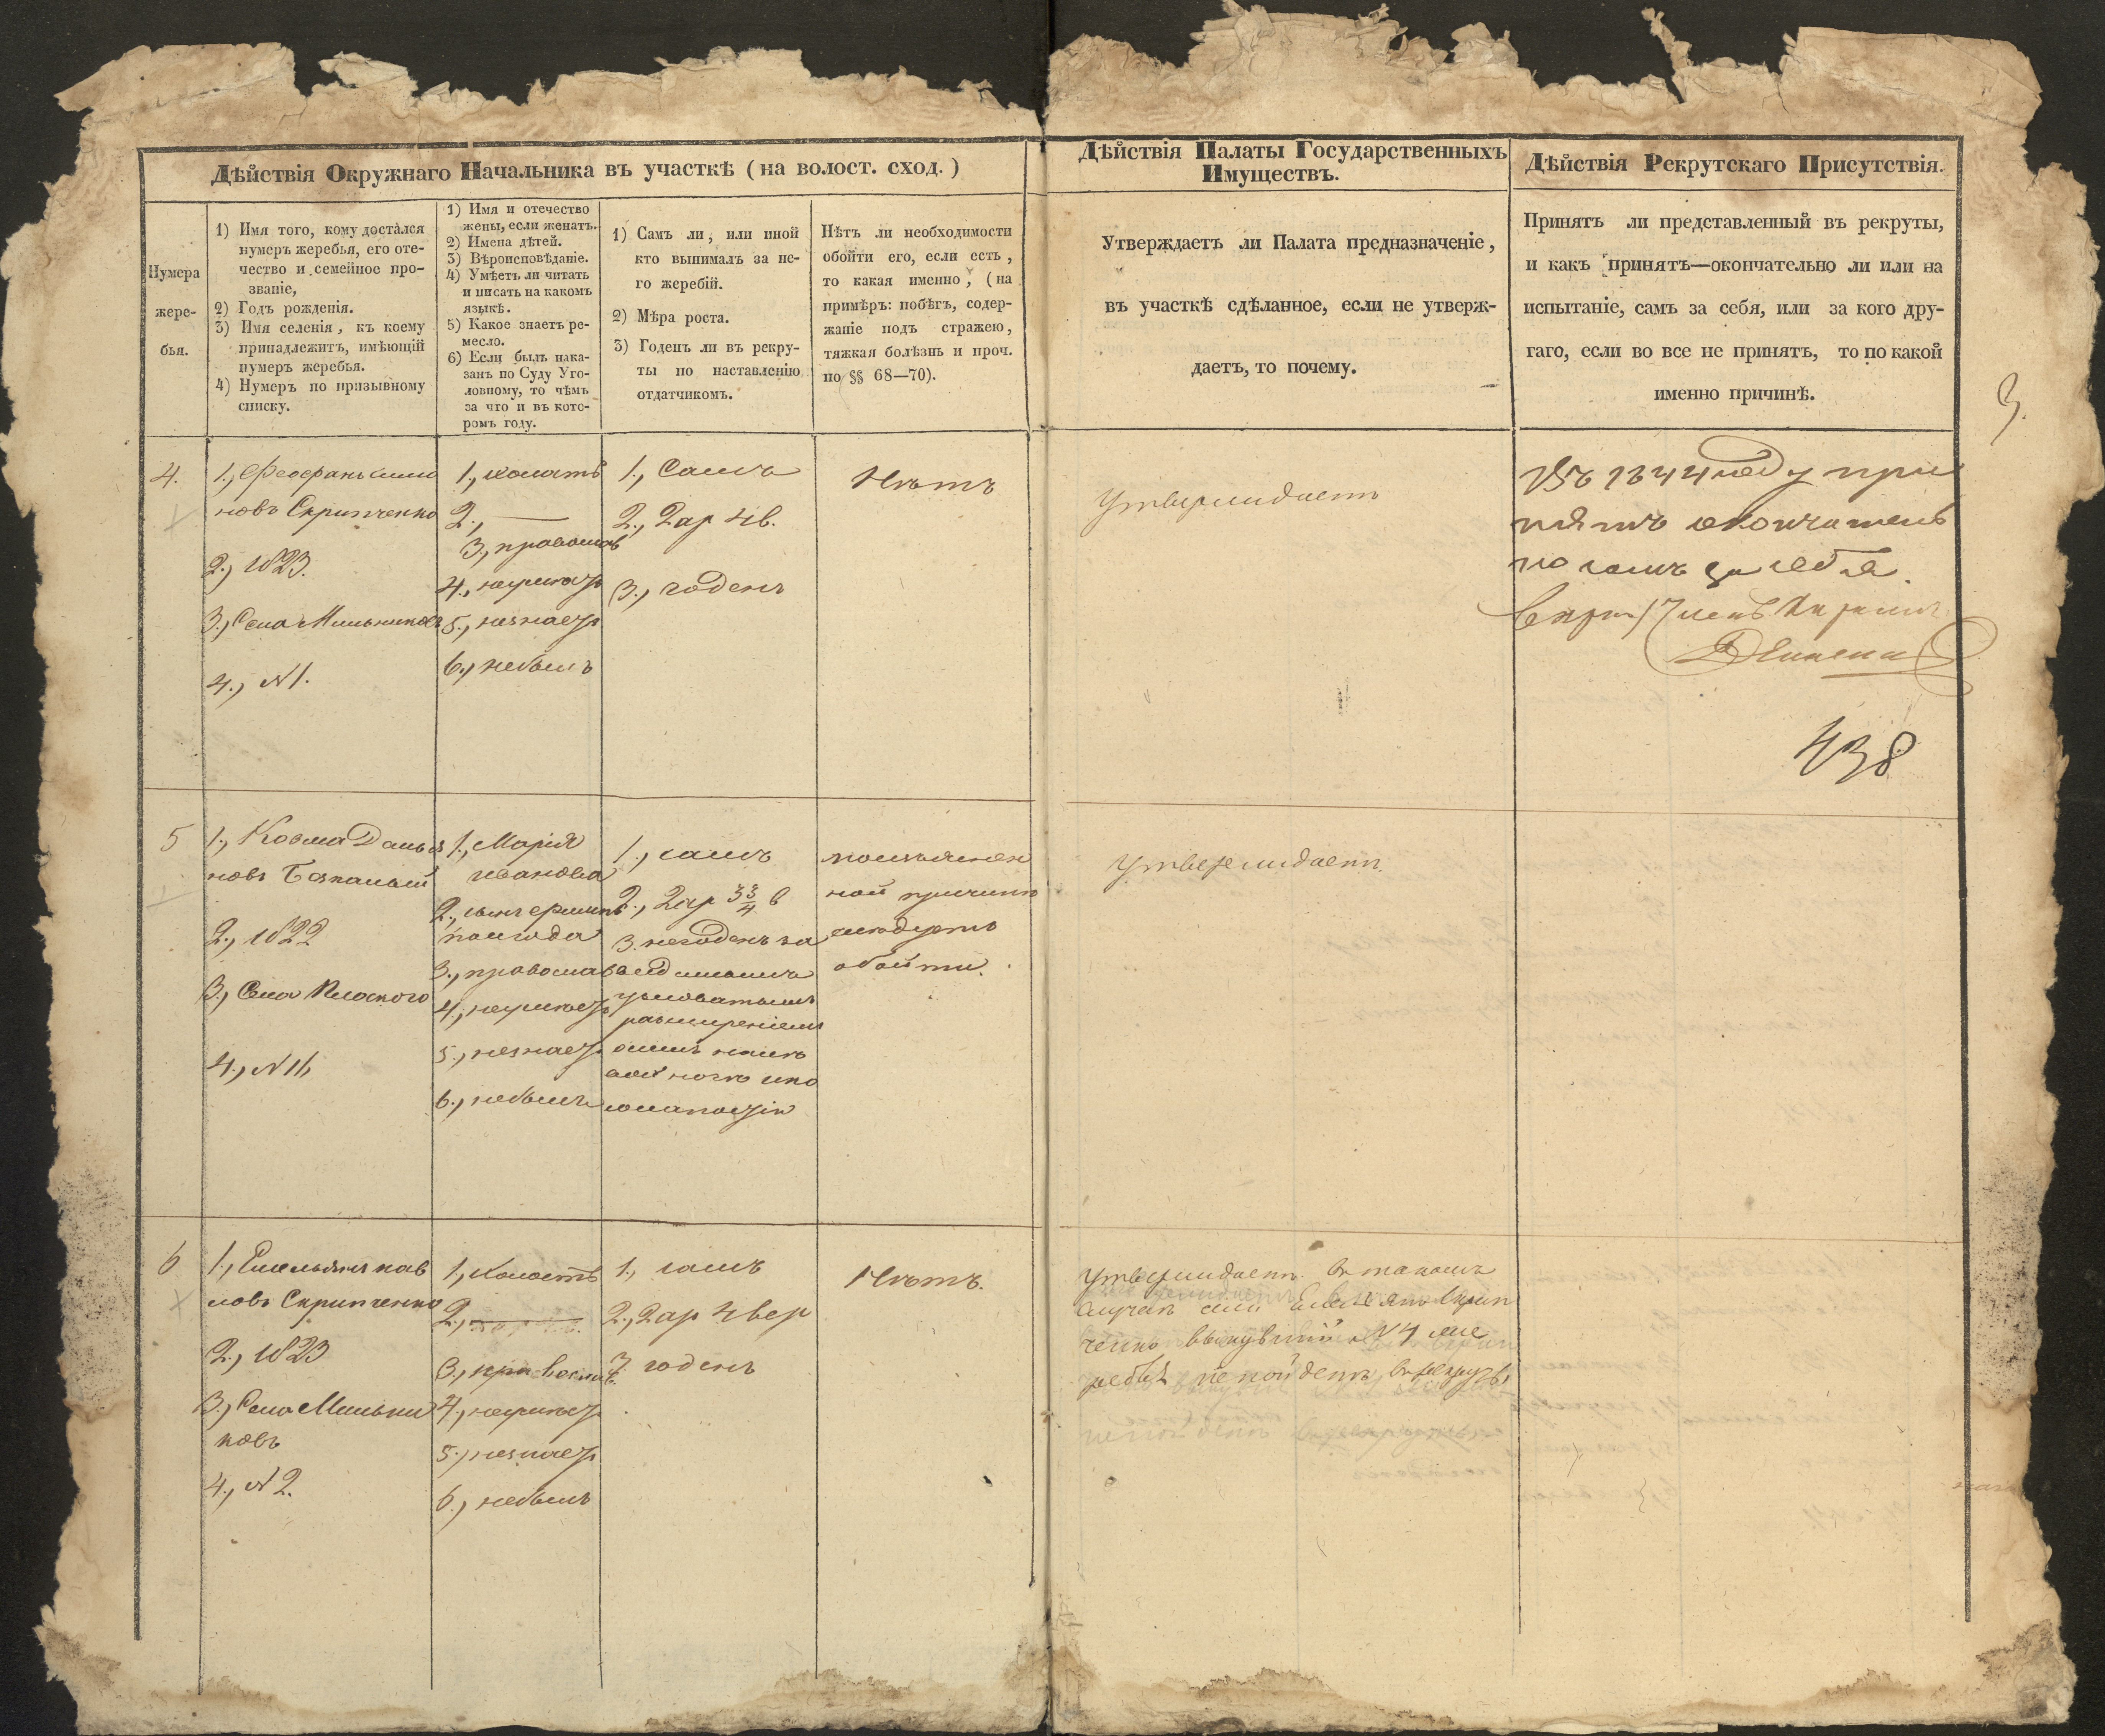 Дѣйствія Окружнаго Начальника въ участкѣ (на волост. сход.)
Дѣйствія Палаты Государственныхъ
Имуществъ.
Дѣйствія Рекрутскаго Присутствія.
Нумера
жере-
бья.
1) Имя того, кому достался
нумеръ жеребья, его оте-
чество и семейное про-
званіе,
2) Годъ рожденія.
3) Имя селенія, къ коему
принадлежитъ, имѣющій
нумеръ жеребья.
4) Нумеръ по призывному
списку.
1) Имя и отечество
жены, если женатъ.
2) Имена дѣтей.
3) Вѣроисповѣданіе.
4) Умѣетъ ли читать
и писать на какомъ
языкѣ.
5) Какое знаетъ ре-
месло.
6) Если былъ нака-
занъ по Суду Уго-
ловному, то чѣмъ
за что и въ кото-
ромъ году.
1) Самъ ли, или иной
кто вынималъ за не-
го жеребій.
2) Мѣра роста.
3) Годенъ ли въ рекру-
ты по наставленію
отдатчикомъ.
Нѣтъ ли необходимости
обойти его, если есть,
то какая именно, (на
примѣръ: побѣгъ, содер-
жаніе подъ стражею,
тяжкая болѣзнь и проч.
по §§ 68—70).
Утверждаетъ ли Палата предназначеніе,
въ участкѣ сдѣланное, если не утверж-
даетъ, то почему.
Принятъ ли представленный въ рекруты,
и какъ принятъ—окончательно ли или на
испытаніе, самъ за себя, или за кого дру-
гаго, если во все не принятъ, то по какой
именно причинѣ.
3.
4.
1., Феофанъ
новъ Скрипченко
2., 1823.
3., Села Мильниковъ
4., N 1.
1., холостъ
2., —
3., православ
4., неумѣетъ
5., незнаетъ
6., небылъ
1., Самъ
2., 2 ар 4 в.
3., годенъ
Нѣтъ
Утверждаетъ
Въ 1844 году при
нятъ окончатель
но самъ за себя.
438
5
1., Козма Данил
новъ
2., 1822
3., Села Плоского
4., N 11,
1., Марія
Иванова
2., сынъ
полгода
3., православ
4., неумѣетъ
5., незнаетъ
6., небылъ
1., самъ
2., 2 ар 3 3/4 в
3. негоденъ за
расширеніемъ
ной причинѣ
слѣдуетъ
обойти.
Утверждаетъ.
6
1., Емельянъ Пав
ловъ Скрипченко
2., 1823
3., Села Мильни
ковъ
4., N 2.
1., Холостъ
2., —
3., православ
4., неумѣетъ
5., незнаетъ
6., небылъ
1., самъ
2., 2 ар 4 вер
3. годенъ
Нѣтъ.
Утверждаетъ въ такомъ
случаѣ если Скрип
ченко вынувшій N 4 же
ребья не пойдетъ в рекруты